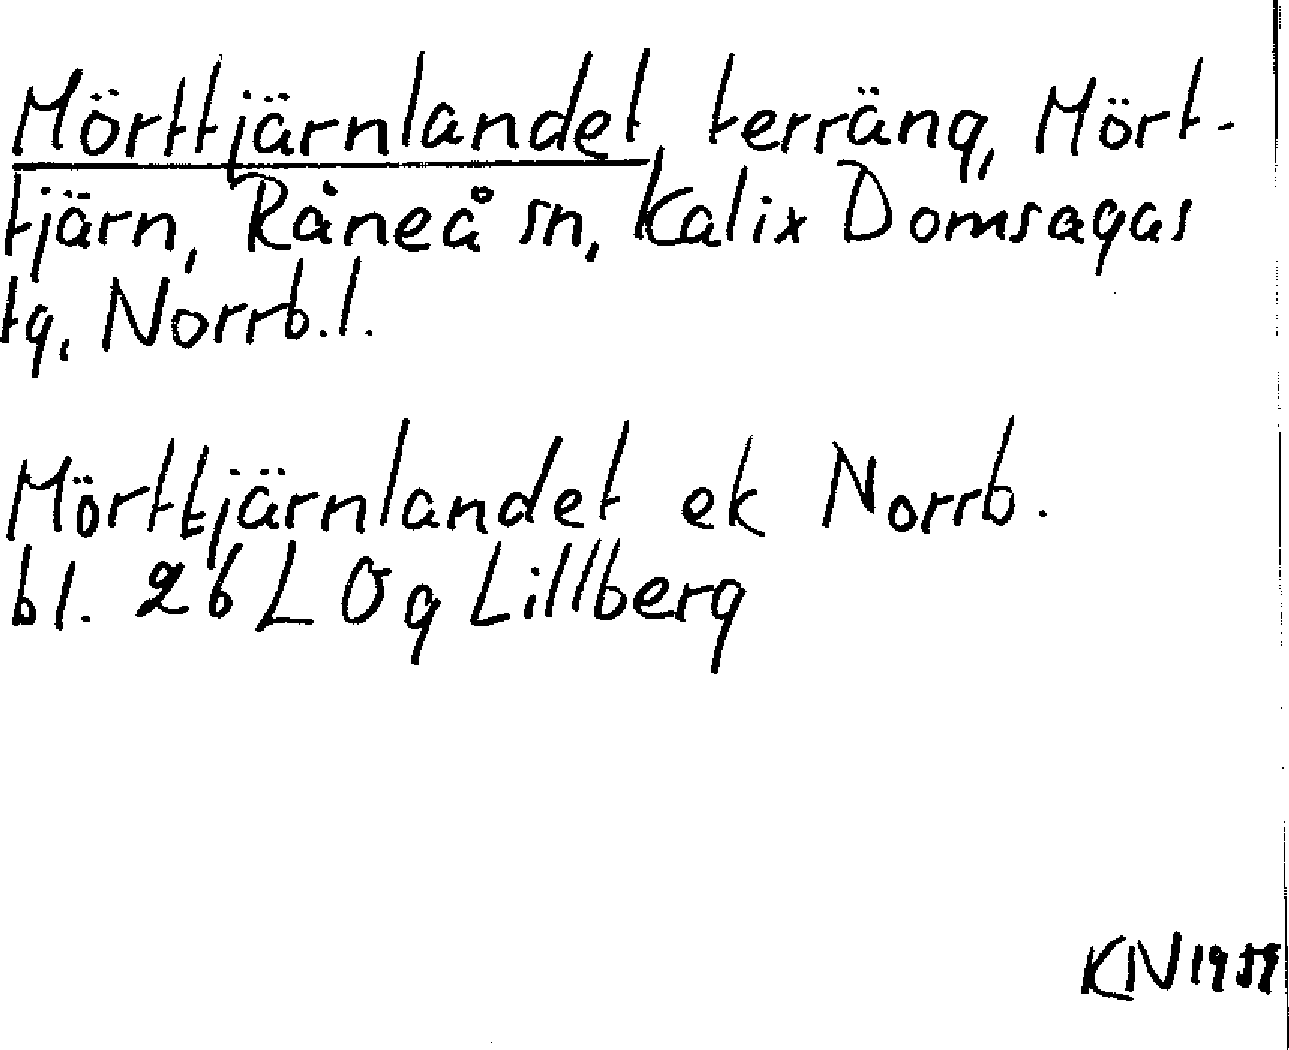 Mörttjärnlandet, terräng, Mört-
tjärn, Råneå sn, Kalix Domsagas
tg, Norrb.l.
Mörttjärnlandet ek Norrb.
bl. 26 L 0g Lillberg
KN 1959